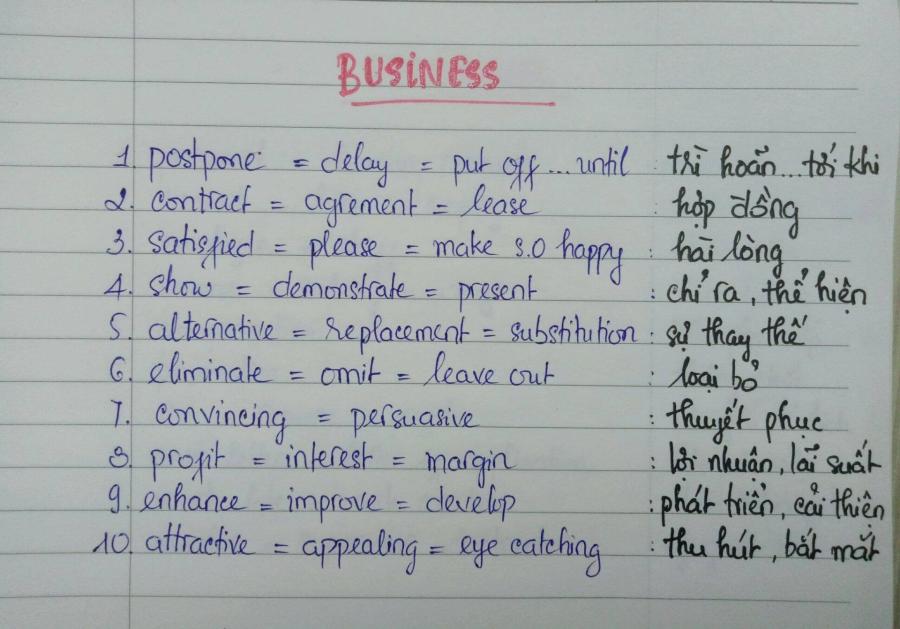 BUSINESS
1. postpone = delay = put off ... until : trì hoãn... tới khi
2. contract = agrement = lease : hợp đồng
3. satisfied = please = make s.o happy : hài lòng
4. show = demonstrate = present : chỉ ra, thể hiện
5. alternative = replacement = substitution : sự thay thế
6. eliminate = omit = leave out : loại bỏ
7. convincing = persuasive : thuyết phục
8. profit = interest = margin : lợi nhuận, lãi suất
9. enhance = improve = develop : phát triển, cải thiện
10. attractive = appealing = eye catching : thu hút, bắt mắt